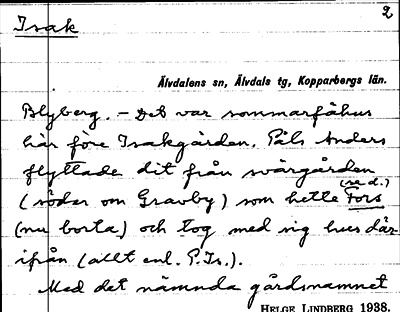 2
Isak
Älvdalens sn, Älvdals tg, Kopparbergs län.
Blyberg. – Det var sommarfähus
här före Isakgården. Påls Anders
flyttade dit från svärgården
(se d.)
(söder om Gravby) som hette Fors
(nu borta) och tog med sig hus där-
ifrån (allt enl. P. Is.).
Med det nämnda gårdsnamnet
HELGE LINDBERG 1938.